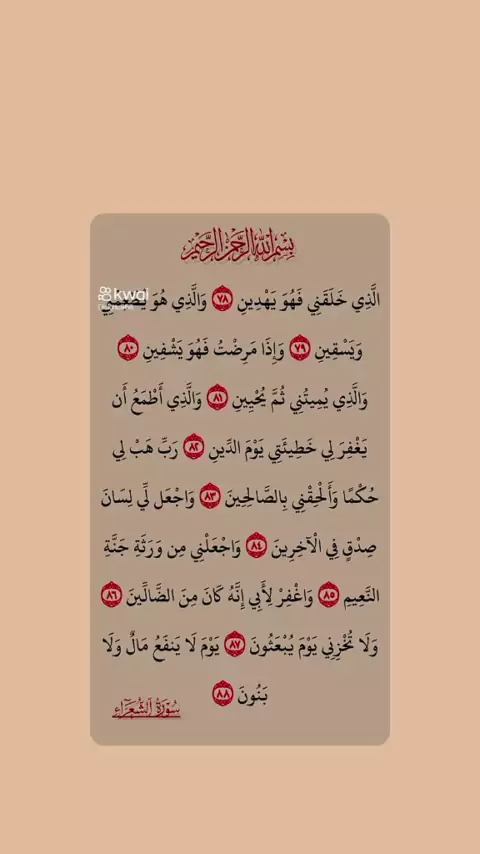 بِسْمِ اللَّهِ الرَّحْمَنِ الرَّحِيمِ
الَّذِي خَلَقَنِي فَهُوَ يَهْدِينِ ٧٨ وَالَّذِي هُوَ يُطْعِمُنِي
kwai
وَيَسْقِينِ ٧٩ وَإِذَا مَرِضْتُ فَهُوَ يَشْفِينِ ٨٠
وَالَّذِي يُمِيتُنِي ثُمَّ يُحْيِينِ ٨١ وَالَّذِي أَطْمَعُ أَن
يَغْفِرَ لِي خَطِيئَتِي يَوْمَ الدِّينِ ٨٢ رَبِّ هَبْ لِي
حُكْمًا وَأَلْحِقْنِي بِالصَّالِحِينَ ٨٣ وَاجْعَل لِّي لِسَانَ
صِدْقٍ فِي الْآخِرِينَ ٨٤ وَاجْعَلْنِي مِن وَرَثَةِ جَنَّةِ
النَّعِيمِ ٨٥ وَاغْفِرْ لِأَبِي إِنَّهُ كَانَ مِنَ الضَّالِّينَ ٨٦
وَلَا تُخْزِنِي يَوْمَ يُبْعَثُونَ ٨٧ يَوْمَ لَا يَنفَعُ مَالٌ وَلَا
بَنُونَ ٨٨
سُورَةُ الشُّعَرَاء